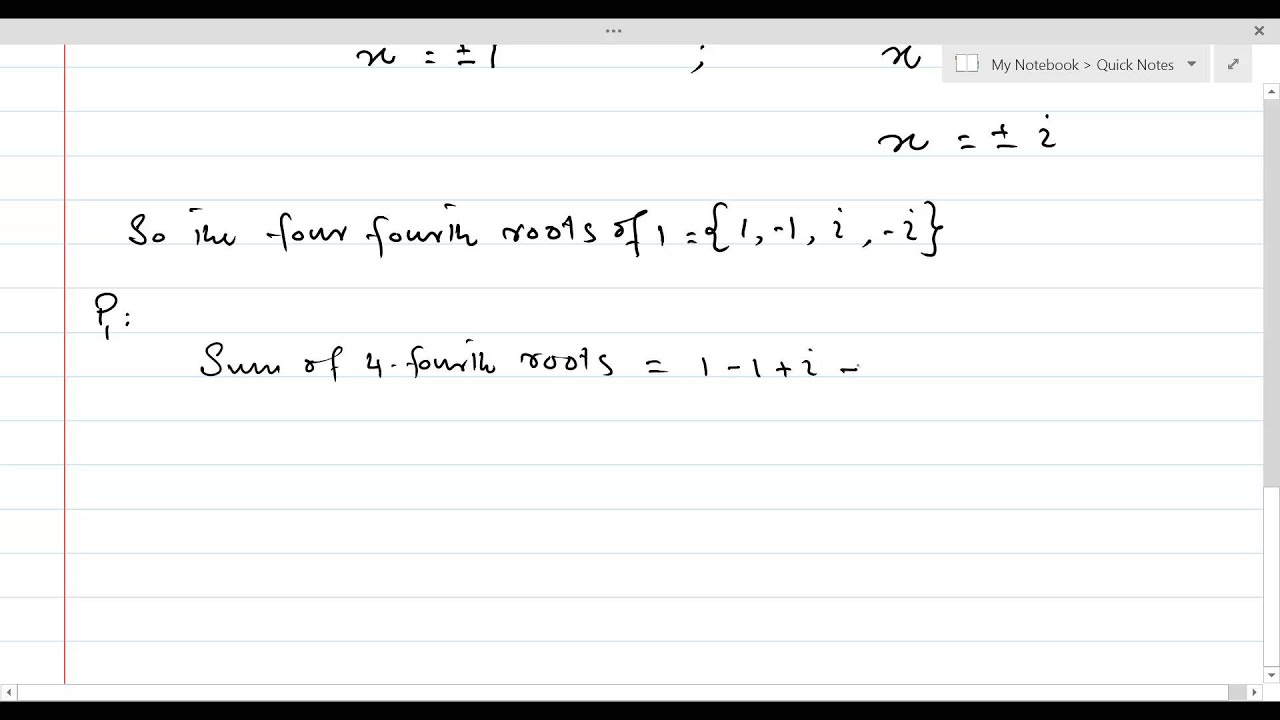 ...
x = ± 1 ; x
My Notebook > Quick Notes
x = ± i
So the four fourth roots of 1 = {1, -1, i, -i}
P₁:
Sum of 4-fourth roots = 1 - 1 + i -